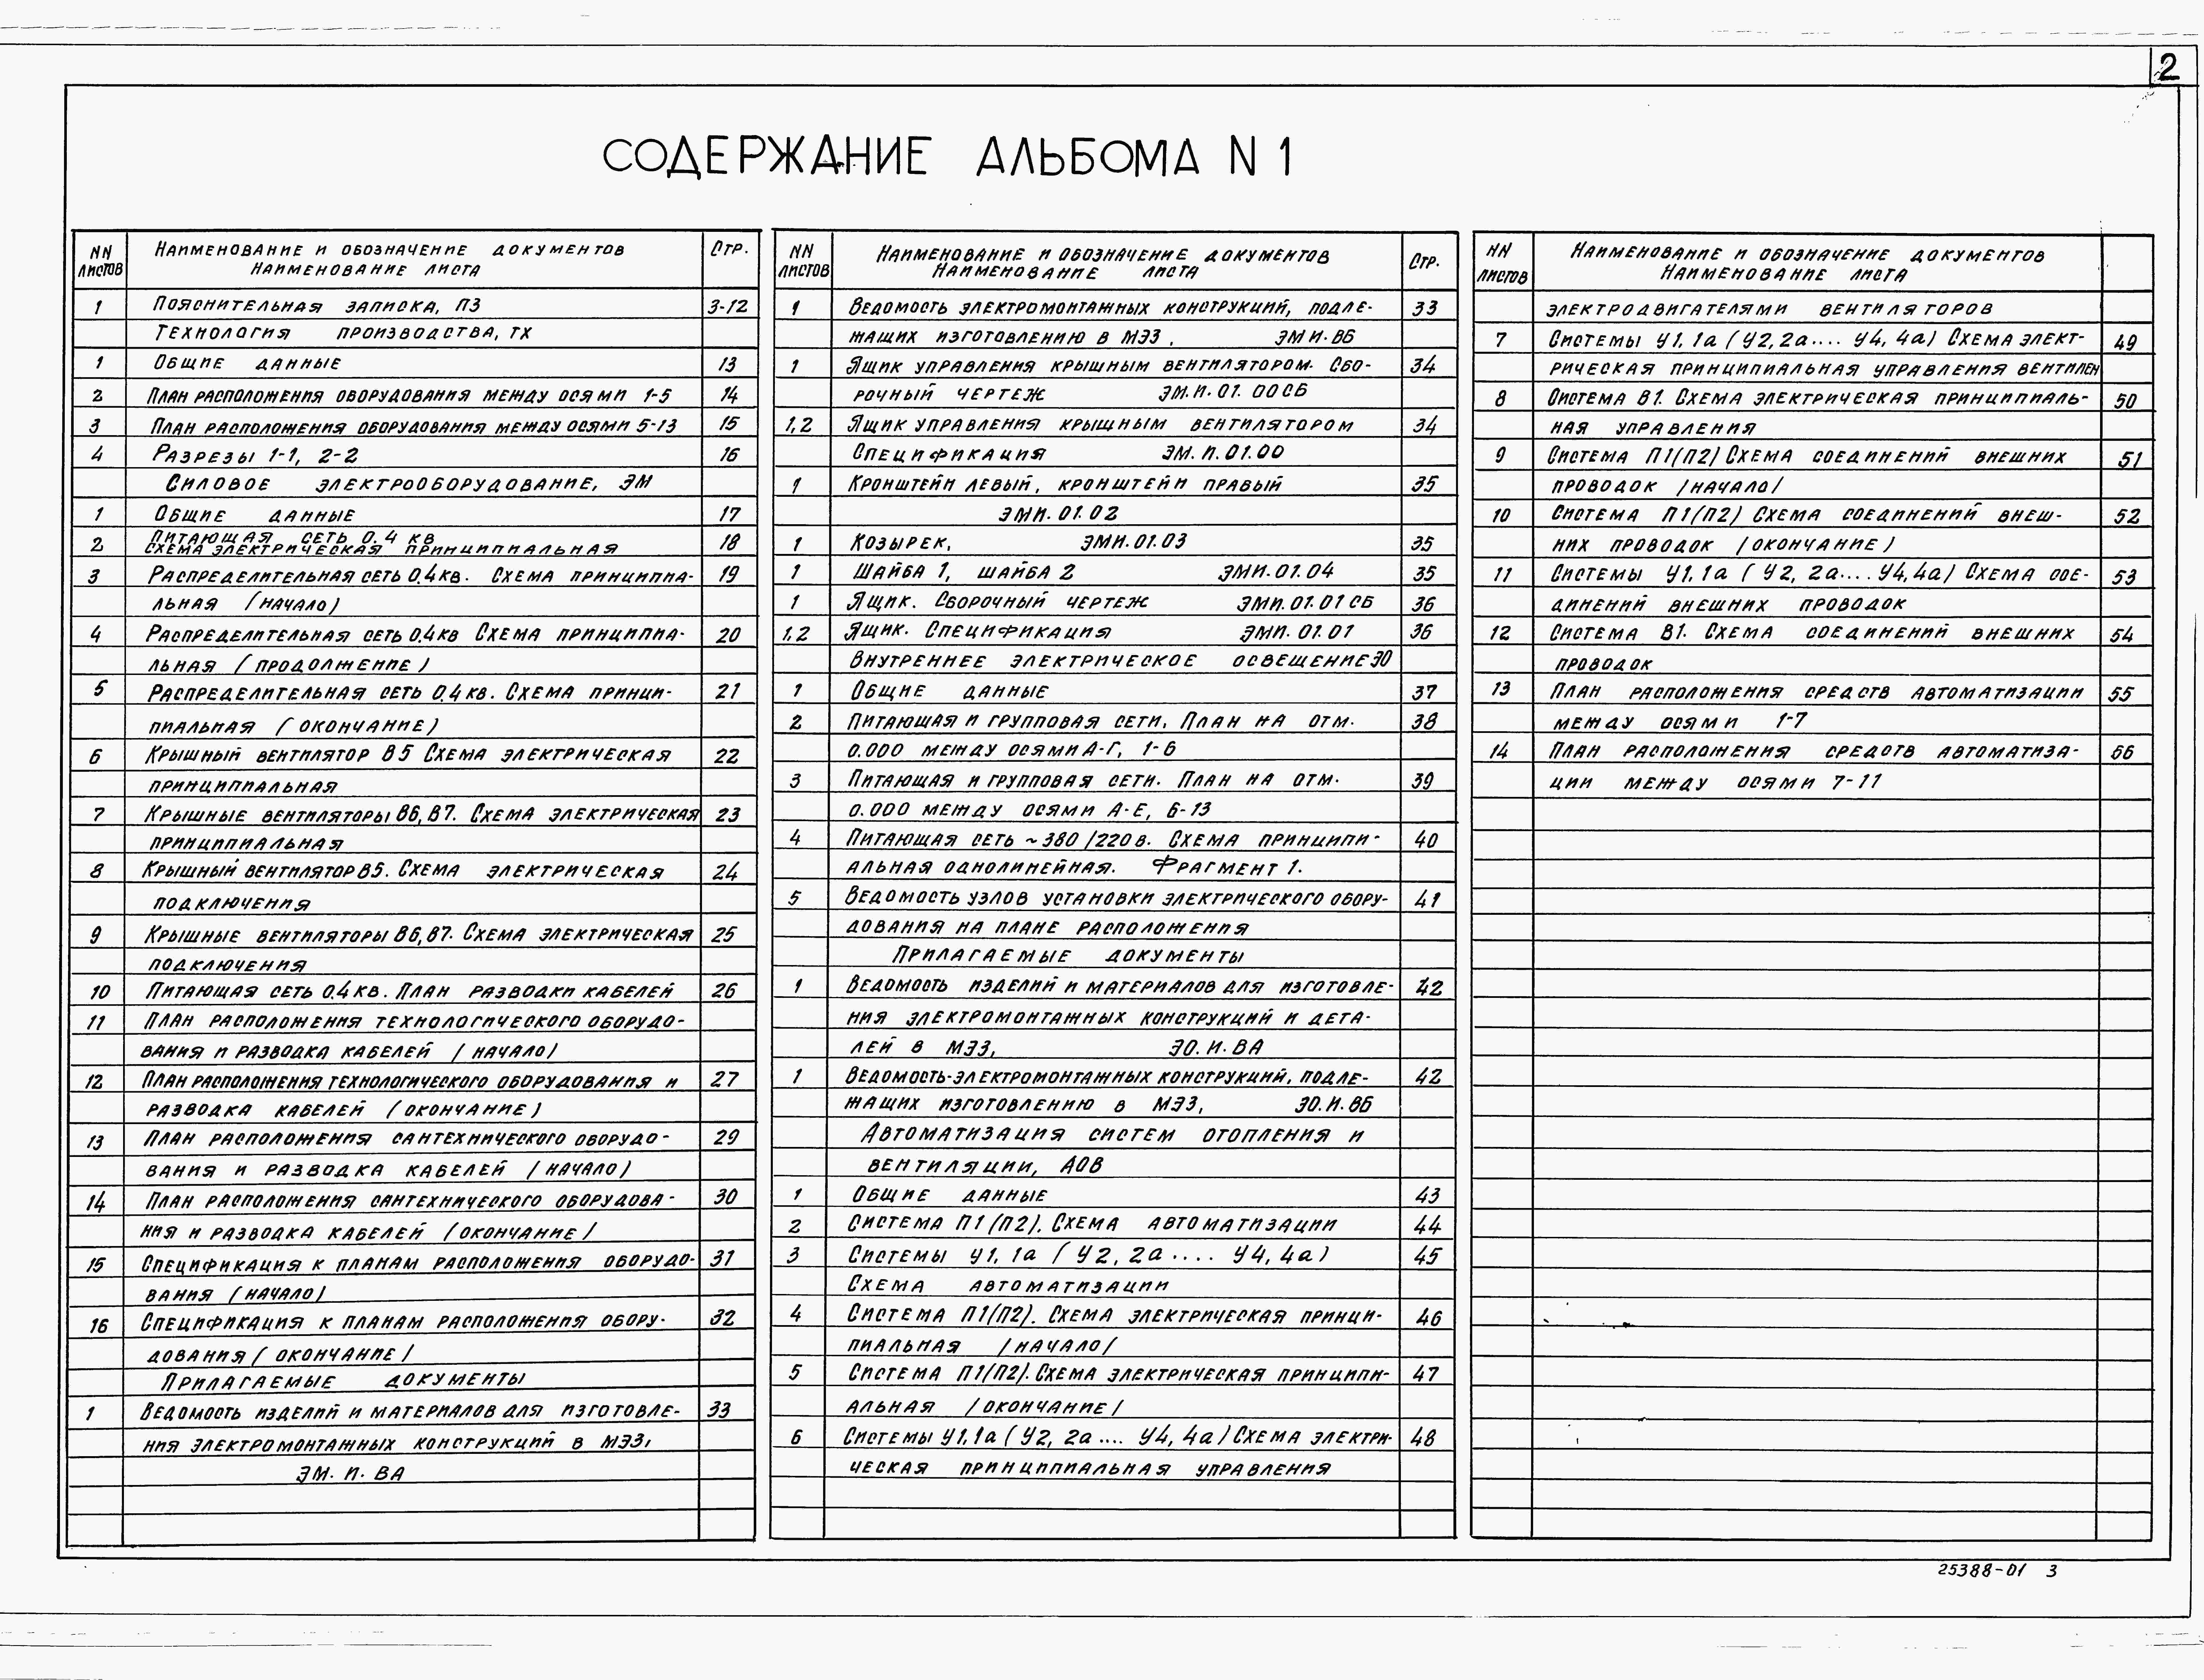 2
СОДЕРЖАНИЕ АЛЬБОМА N 1
NN листов Наименование и обозначение документов Стр.
Наименование листа
1 Пояснительная записка, ПЗ 3-12
Технология производства, ТХ
1 Общие данные 13
2 План расположения оборудования между осями 1-5 14
3 План расположения оборудования между осями 5-13 15
4 Разрезы 1-1, 2-2 16
Силовое электрооборудование, ЭМ
1 Общие данные 17
2 Питающая сеть 0.4 кв 18
схема электрическая принципиальная
3 Распределительная сеть 0.4 кв. Схема принципиа- 19
льная (начало)
4 Распределительная сеть 0.4 кв Схема принципиа- 20
льная (продолжение)
5 Распределительная сеть 0.4 кв. Схема принци- 21
пиальная (окончание)
6 Крышный вентилятор В5 Схема электрическая 22
принципиальная
7 Крышные вентиляторы В6, В7. Схема электрическая 23
принципиальная
8 Крышный вентилятор В5. Схема электрическая 24
подключения
9 Крышные вентиляторы В6, В7. Схема электрическая 25
подключения
10 Питающая сеть 0.4 кв. План разводки кабелей 26
11 План расположения технологического оборудо-
вания и разводка кабелей (начало)
12 План расположения технологического оборудования и 27
разводка кабелей (окончание)
13 План расположения сантехнического оборудо- 29
вания и разводка кабелей (начало)
14 План расположения сантехнического оборудова- 30
ния и разводка кабелей (окончание)
15 Спецификация к планам расположения оборудо- 31
вания (начало)
16 Спецификация к планам расположения обору- 32
дования (окончание)
Прилагаемые документы
1 Ведомость изделий и материалов для изготовле- 33
ния электромонтажных конструкций в МЭЗ,
ЭМ. И. ВА
NN листов Наименование и обозначение документов Стр.
Наименование листа
1 Ведомость электромонтажных конструкций, подле- 33
жащих изготовлению в МЭЗ, ЭМ И. ВБ
1 Ящик управления крышным вентилятором. Сбо- 34
рочный чертеж ЭМ.И.01.00СБ
1,2 Ящик управления крышным вентилятором 34
Спецификация ЭМ. И. 01.00
1 Кронштейн левый, кронштейн правый 35
ЭМИ. 01.02
1 Козырек, ЭМИ.01.03 35
1 Шайба 1, шайба 2 ЭМИ.01.04 35
1 Ящик. Сборочный чертеж ЭМИ.01.01 СБ 36
1,2 Ящик. Спецификация ЭМИ. 01.01 36
Внутреннее электрическое освещение ЭО
1 Общие данные 37
2 Питающая и групповая сети. План на отм. 38
0.000 между осями А-Г, 1-6
3 Питающая и групповая сети. План на отм. 39
0.000 между осями А-Е, 6-13
4 Питающая сеть ~380/220 в. Схема принципи- 40
альная однолинейная. Фрагмент 1.
5 Ведомость узлов установки электрического обору- 41
дования на плане расположения
Прилагаемые документы
1 Ведомость изделий и материалов для изготовле- 42
ния электромонтажных конструкций и дета-
лей в МЭЗ, ЭО. И. ВА
1 Ведомость-электромонтажных конструкций, подле- 42
жащих изготовлению в МЭЗ, ЭО.И.ВБ
Автоматизация систем отопления и
вентиляции, АОВ
1 Общие данные 43
2 Система П1 (П2). Схема автоматизации 44
3 Системы У1, 1а (У2, 2а.... У4, 4а) 45
Схема автоматизации
4 Система П1(П2). Схема электрическая принци- 46
пиальная /начало/
5 Система П1(П2). Схема электрическая принципи- 47
альная /окончание/
6 Системы У1, 1а (У2, 2а.... У4, 4а) Схема электри- 48
ческая принципиальная управления
NN листов Наименование и обозначение документов
Наименование листа
электродвигателями вентиляторов
7 Системы У1, 1а (У2, 2а.... У4, 4а) Схема элект- 49
рическая принципиальная управления вентилен
8 Система В1. Схема электрическая принципиаль- 50
ная управления
9 Система П1(П2) Схема соединений внешних 51
проводок /начало/
10 Система П1(П2) Схема соединений внеш- 52
них проводок (окончание)
11 Системы У1, 1а (У2, 2а.... У4, 4а) Схема сое- 53
динений внешних проводок
12 Система В1. Схема соединений внешних 54
проводок
13 План расположения средств автоматизации 55
между осями 1-7
14 План расположения средств автоматиза- 66
ции между осями 7-11
25388-01 3